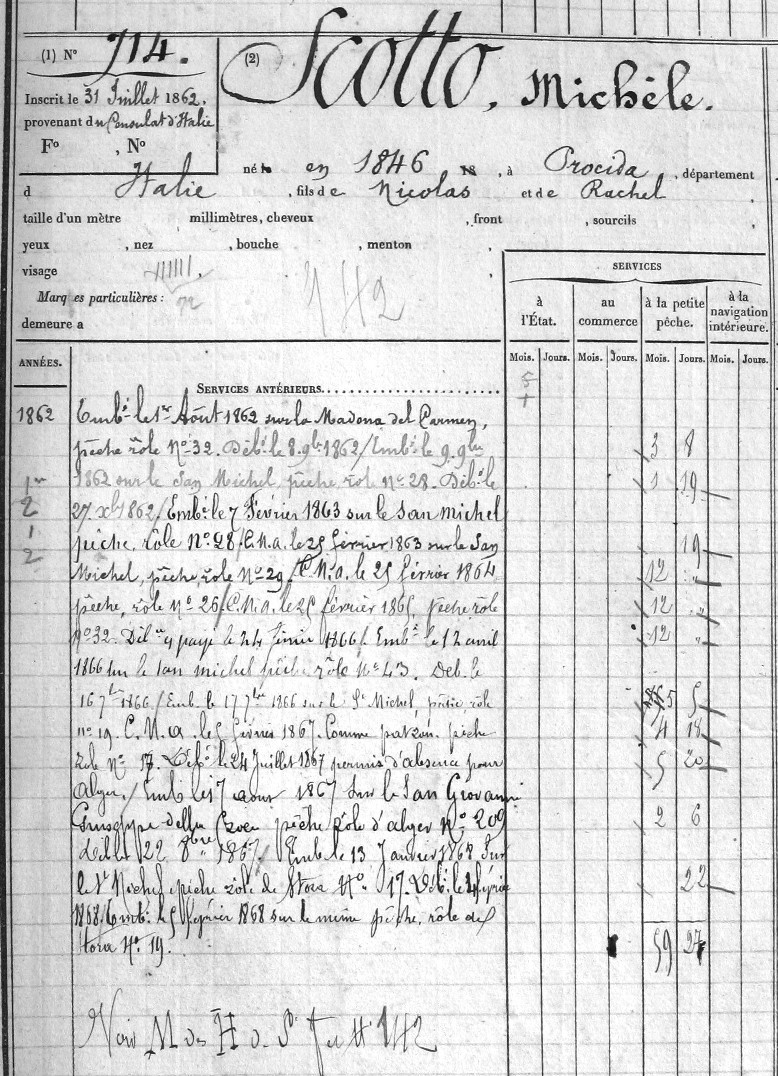 (1) N° 714.
(2) Scotto, Michèle.
Inscrit le 31 Juillet 1862,
provenant du Consulat d'Italie
F° , N°
né en 1846 18 , à Procida , département
d Italie , fils de Nicolas et de Rachel
taille d'un mètre millimètres, cheveux , front , sourcils ,
yeux , nez , bouche , menton ,
visage
Marques particulières :
142
demeure a
SERVICES
à l'État. au commerce à la petite pêche. à la navigation intérieure.
Mois. Jours. Mois. Jours. Mois. Jours. Mois. Jours.
ANNÉES.
SERVICES ANTÉRIEURS
1862 Emb. le 1er Août 1862 sur la Madona del Carmen,
pêche rôle N° 32. Déb. le 8 9b 1862/Emb. le 9 9bre 3 8
1862 sur le San Michel, pêche, role N° 28. Déb. le 1 19
27 xb 1862/Emb. le 7 Février 1863 sur le San Michel
pêche, rôle N° 28/C.N.a. le 25 février 1863 sur le San 19
Michel, pêche, role N° 29/C.N.a. le 25 février 1864 12 "
pêche, rôle N° 26/C.N.a. le 25 février 1865, pêche, rôle 12 "
N° 32. le 24 1866/Emb. le 12 avril 12 "
1866 sur le San Michel pêche rôle N° 43. Deb. le
16 7bre 1866/Emb. le 17 7bre 1866 sur le St Michel, rôle 5 5
N° 19. C.N.a. le 5 février 1867. Comme patron. pêche 4 18
Role N° 17 Déb. le 24 Juillet 1867 permis d'absence pour 5 20
Alger./Emb le 17 aout 1867 sur le San Giovanni
Giuseppe della Croce pêche rôle d'alger N° 209 2 6
Déb. le 22 8bre 1867/Emb. le 13 Janvier 1868 Sur
le St Michel pêche rôle de Stora N° 17 Déb. le 4 février 22
1868/Emb. le 5 février 1868 sur le même pêche, rôle de
Stora N° 19. 59 27
Voir M des H de St f° N° 142